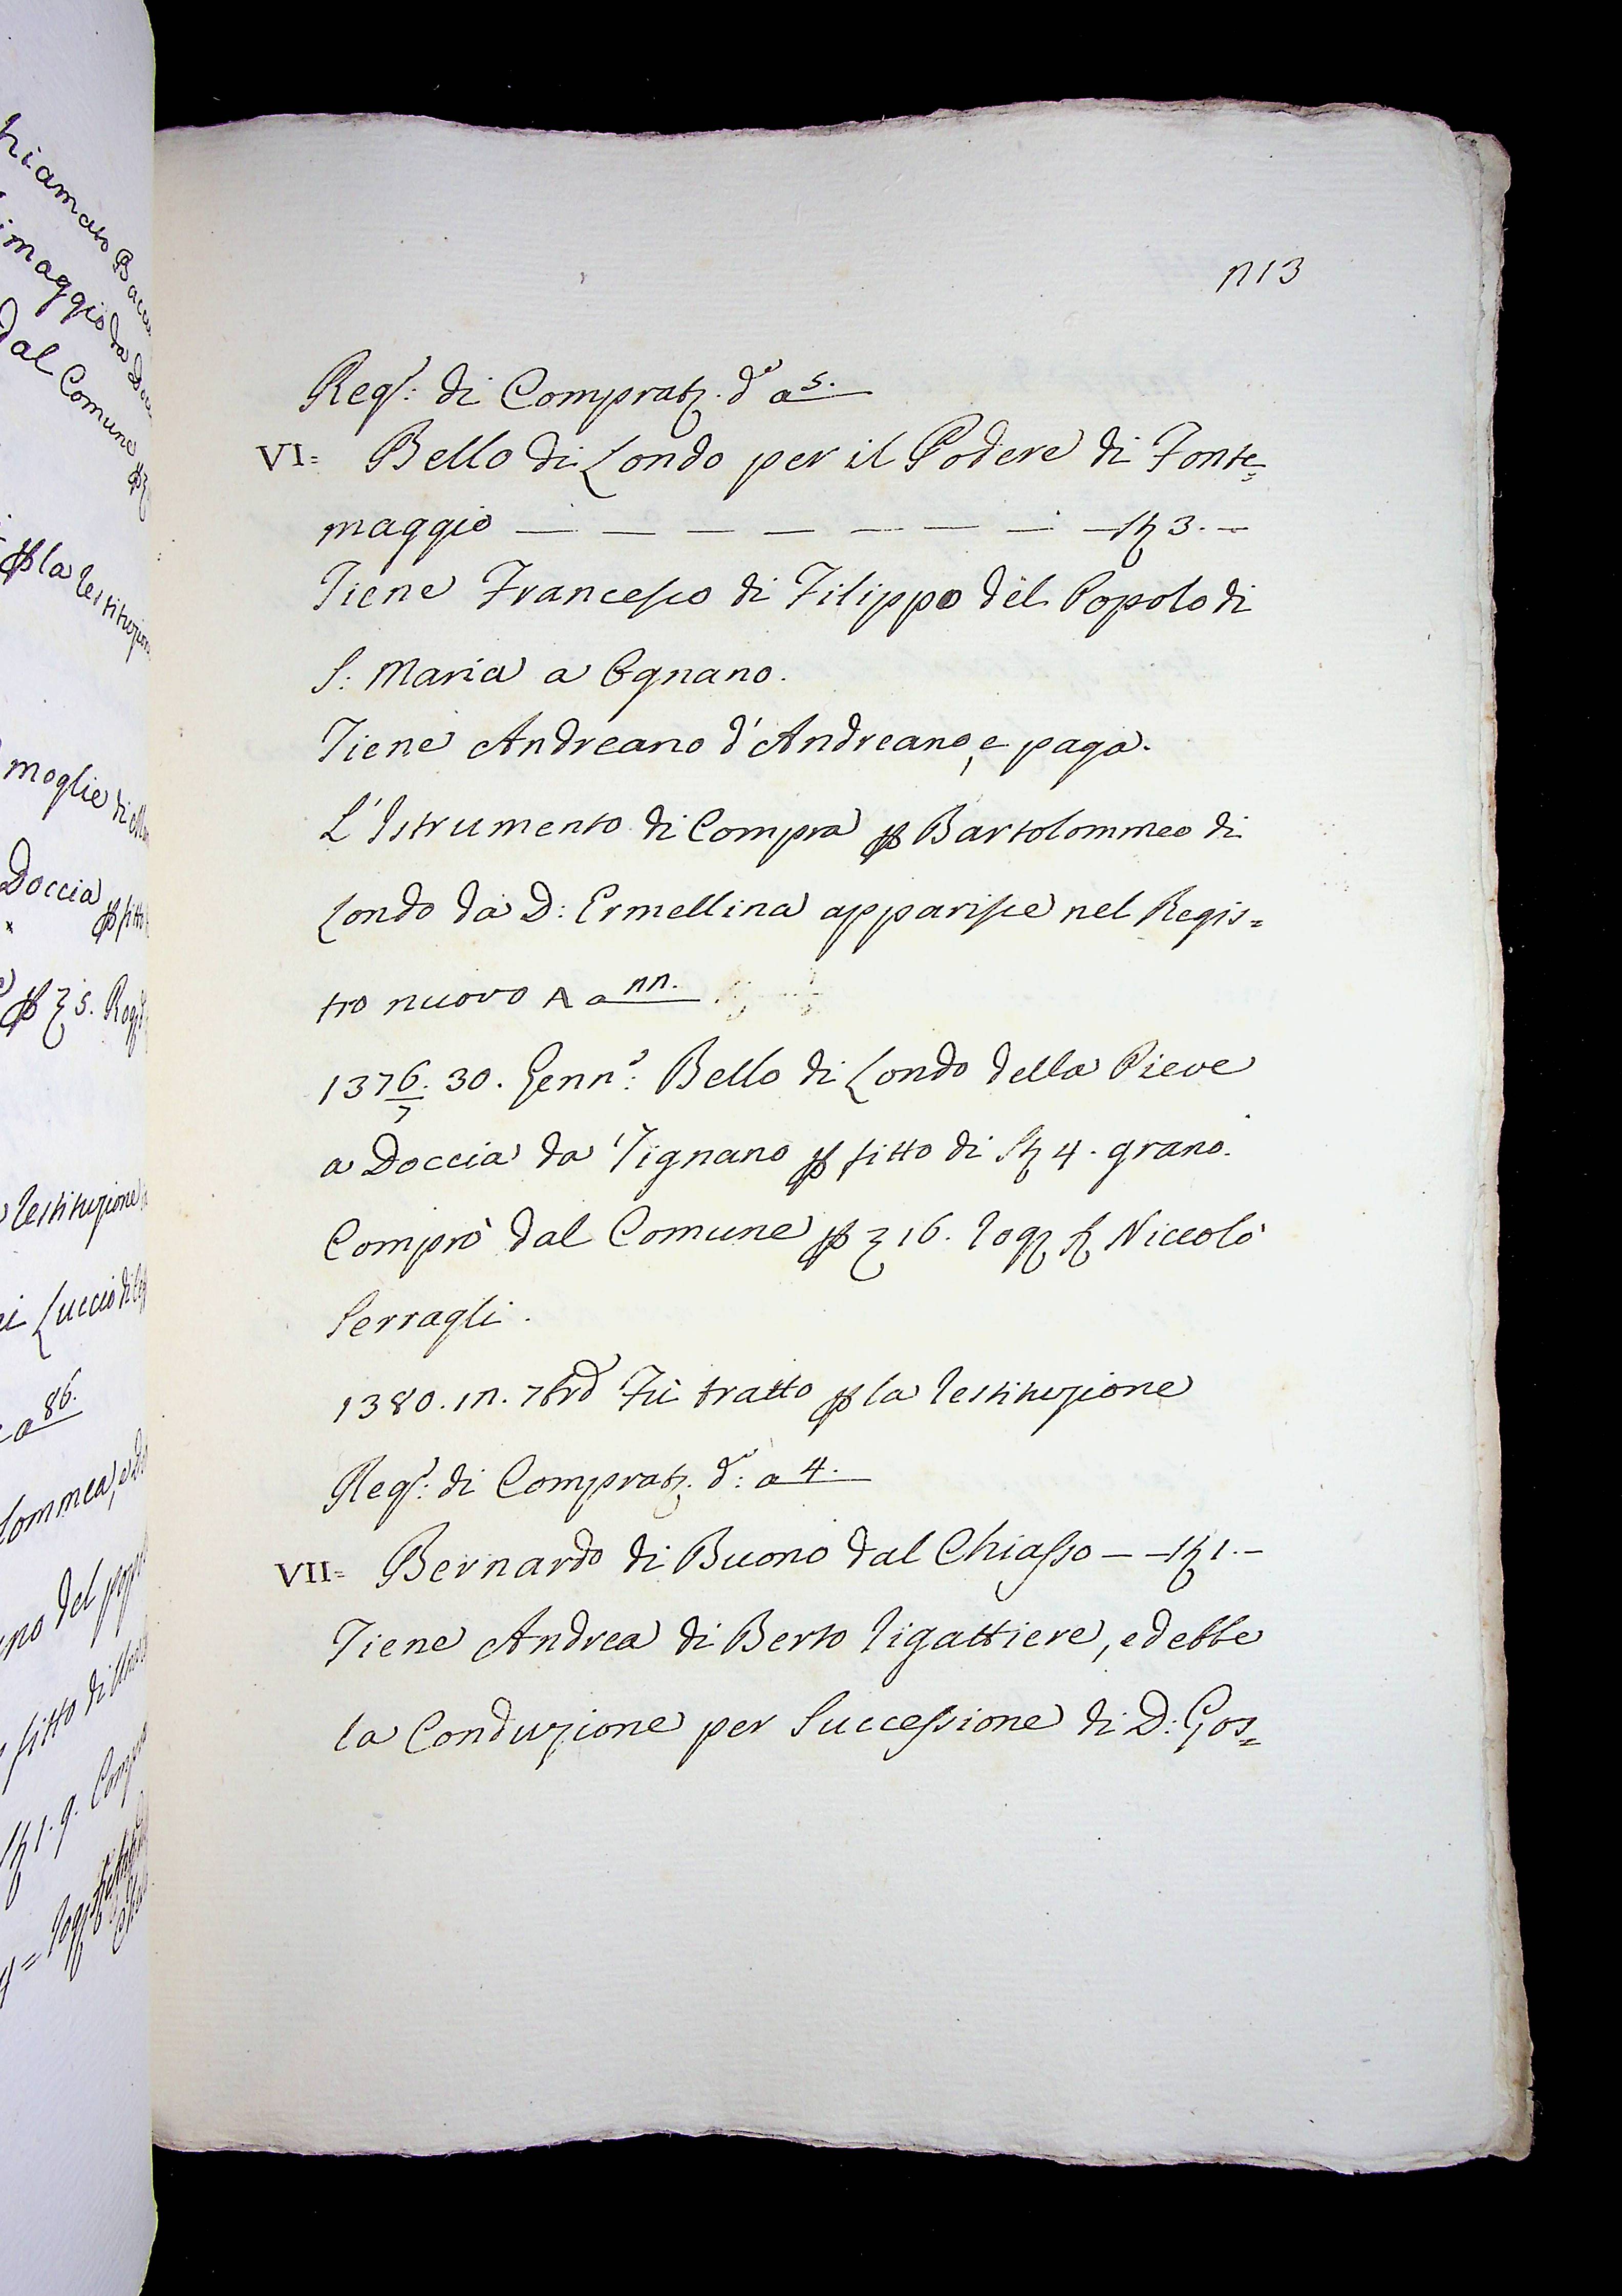 n13
Reg.o: di Comprat.i d.o a 5.
VI= Bello di Londo per il Podere di Fonte=
maggio — — — — — — — St 3. —
Tiene Francesco di Filippo del Popolo di
S: Maria a Ognano.
Tiene Andreano d'Andreano, e paga.
L'Istrumento di Compra p Bartolommeo di
Londo da D: Ermellina apparisce nel Regis=
tro nuovo A a nn.
1376/7. 30. Genn.o: Bello di Londo della Pieve
a Doccia da Vignano p fitto di St 4. grano.
Comprò dal Comune p 16. rog Niccolò
Serragli.
1380. in. 7bre Fù tratto p la restituzione
Reg.o: di Comprat.i d.o: a 4.
VII= Bernardo di Buono dal Chiasso — — St 1. —
Tiene Andrea di Berto rigattiere, ed ebbe
la Conduzione per Successione di D: Gos=